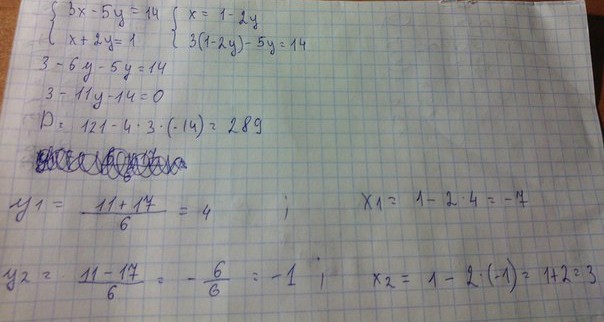 { 3x - 5y = 14 { x = 1 - 2y
{ x + 2y = 1 { 3(1-2y) - 5y = 14
3 - 6y - 5y = 14
3 - 11y - 14 = 0
D = 121 - 4 · 3 · (-14) = 289
y1 = (11 + 17)/6 = 4 ; x1 = 1 - 2 · 4 = -7
y2 = (11 - 17)/6 = - 6/6 = -1 ; x2 = 1 - 2 · (-1) = 1+2 = 3